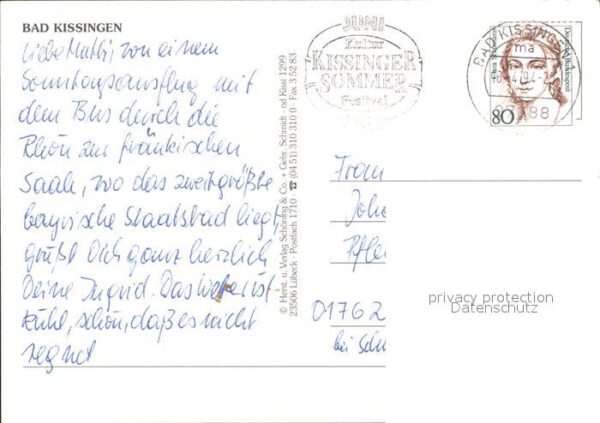 BAD KISSINGEN
Liebe Mutti, von einem
Sonntagsausflug mit
dem Bus durch die
Rhön zur fränkischen
Saale, wo das zweitgrößte
bayrische Staatsbad liegt,
grüßt Dich ganz herzlich
Deine Ingrid. Das Wetter ist
kühl, schön, daß es nicht
regnet
© Herst. u. Verlag Schöning & Co. + Gebr. Schmidt · nd Kissi 1299
23506 Lübeck · Postfach 1710 · ☎ (04 51) 310 310 0 · Fax 3 52 83
JUNI
Kultur
KISSINGER
SOMMER
Festival
BAD KISSINGEN
ma
88
Deutsche Bundespost
80
Frau
Joh
Pfle
01762
bei Sch
privacy protection
Datenschutz